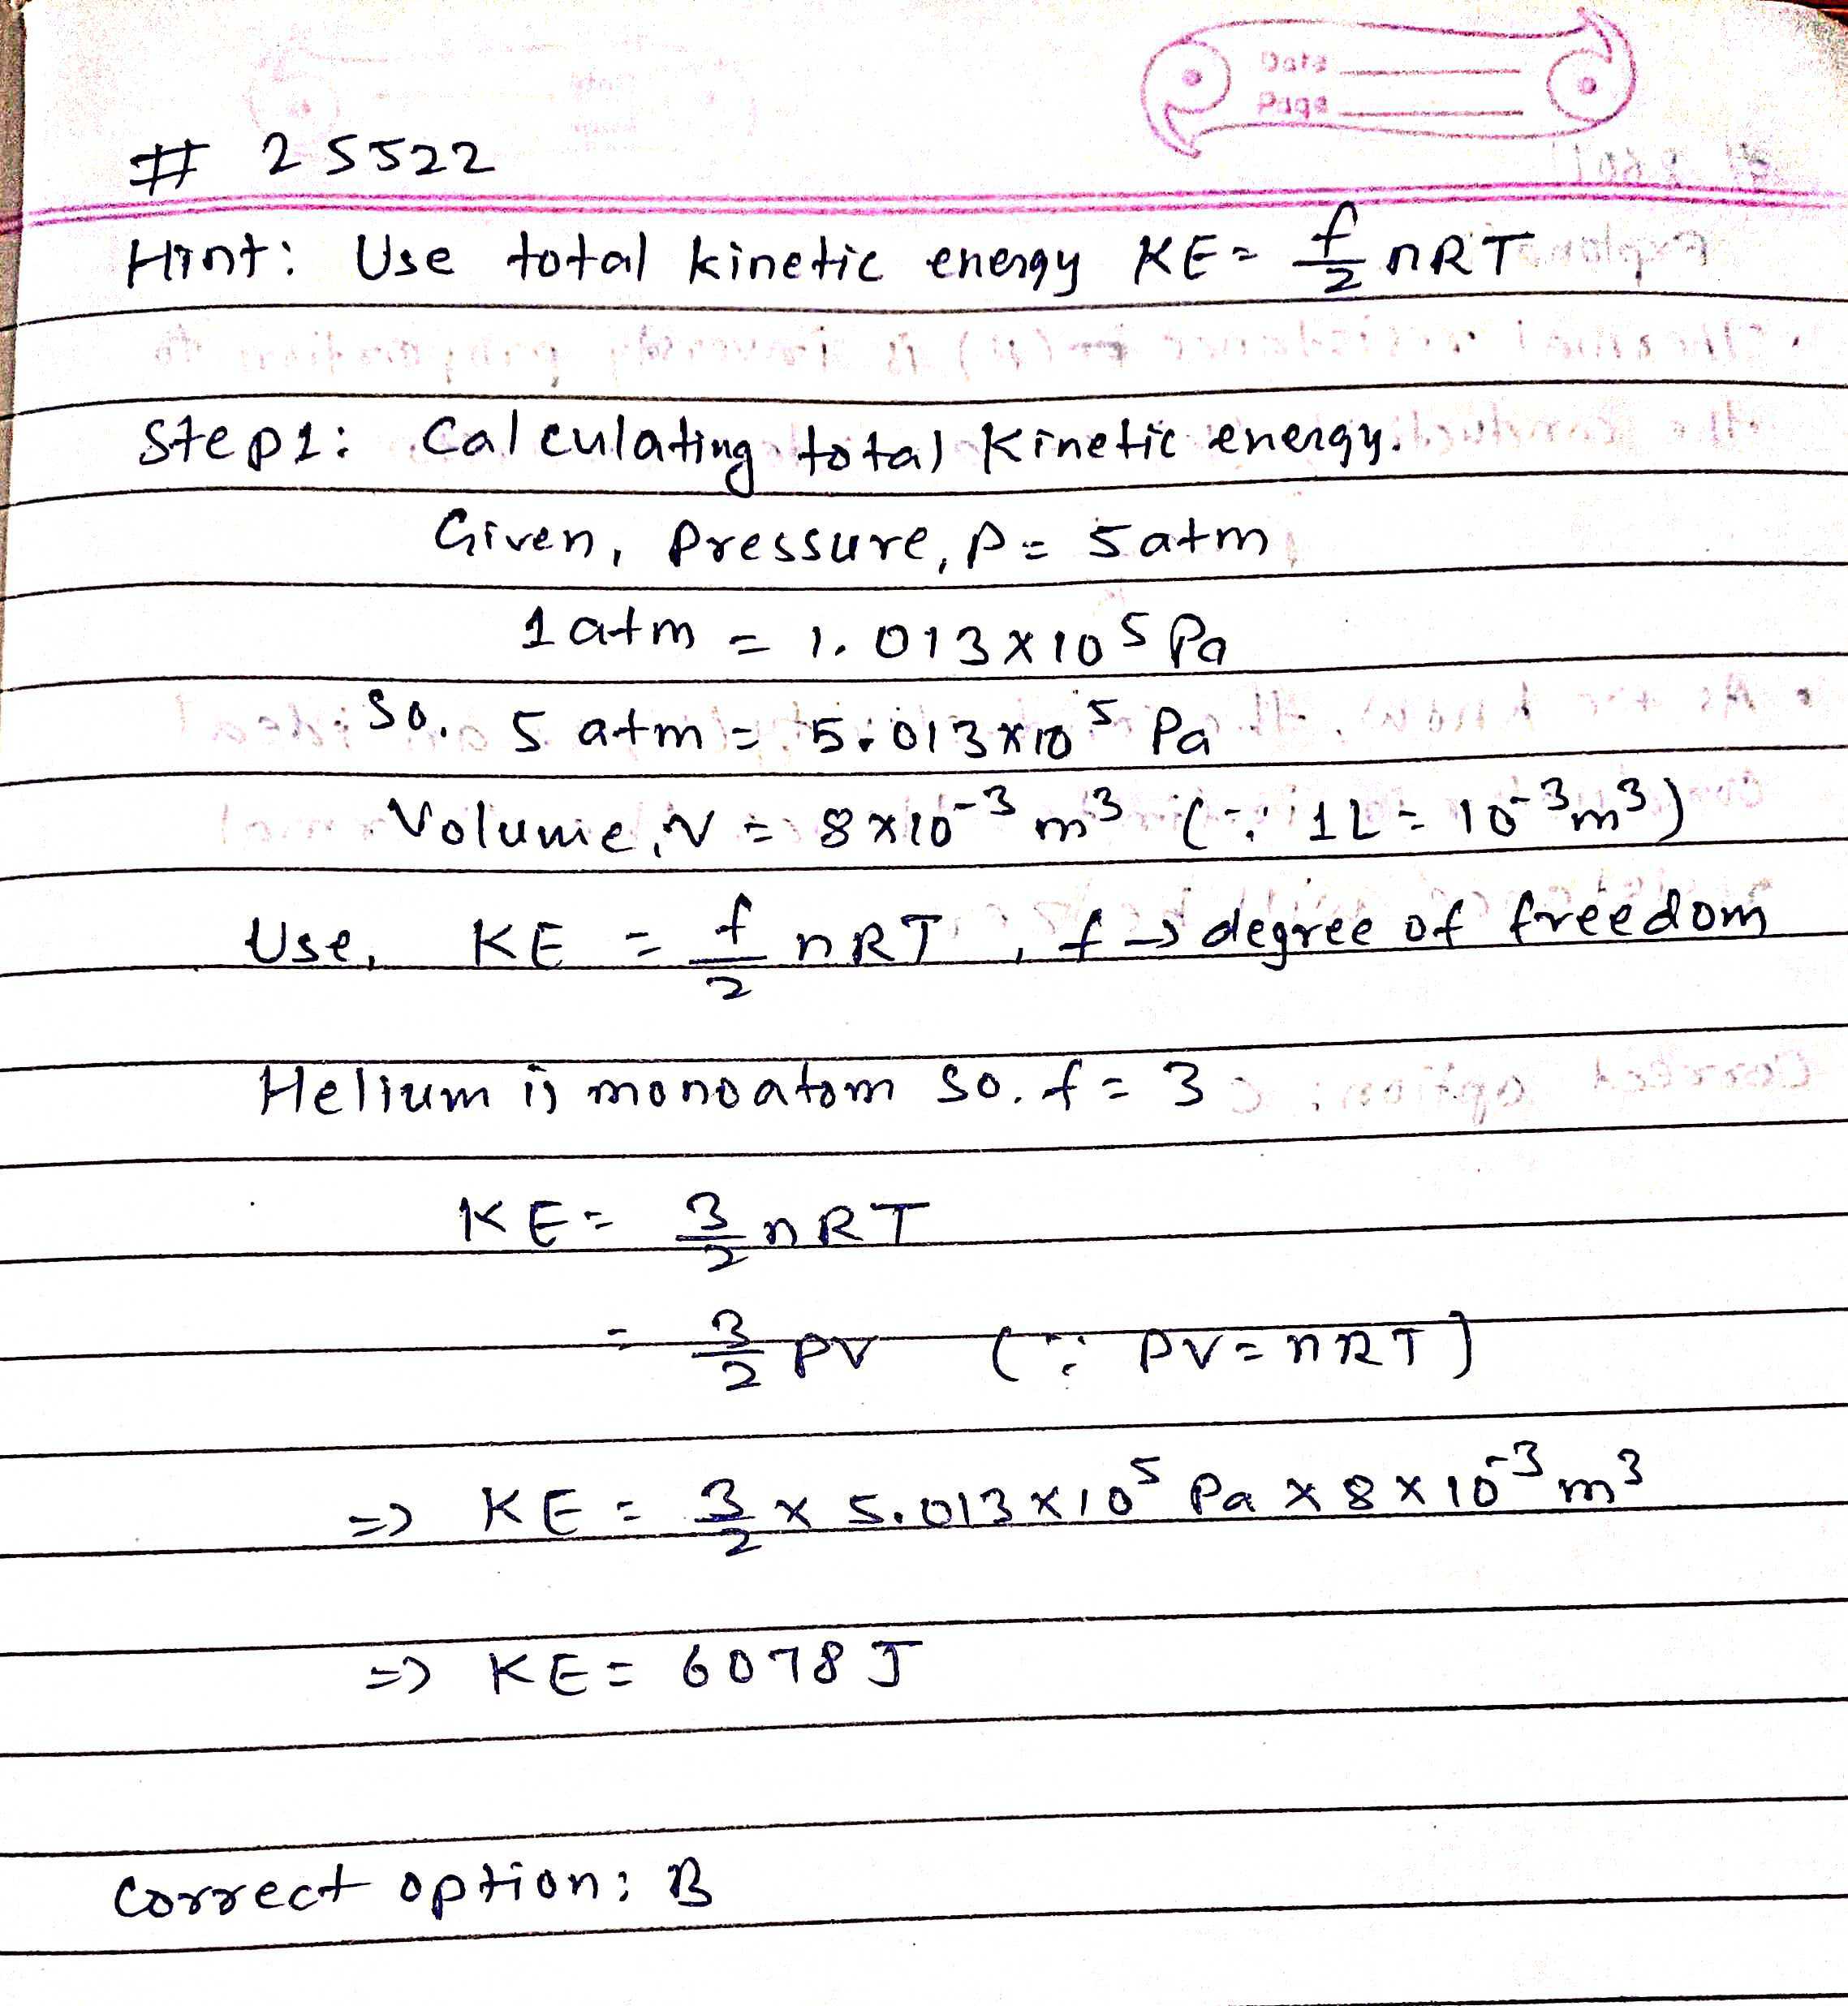 Date
Page
# 25522
Hint: Use total kinetic energy KE = f/2 nRT
Step1: Calculating total Kinetic energy.
Given, Pressure, P = 5 atm
1 atm = 1.013 x 10^5 Pa
So, 5 atm = 5.013 x 10^5 Pa
Volume, V = 8 x 10^-3 m^3 (∵ 1L = 10^-3 m^3)
Use, KE = f/2 nRT , f → degree of freedom
Helium is monoatom so. f = 3
KE = 3/2 nRT
= 3/2 PV (∵ PV = nRT)
=> KE = 3/2 x 5.013 x 10^5 Pa x 8 x 10^-3 m^3
=> KE = 6078 J
Correct option: B